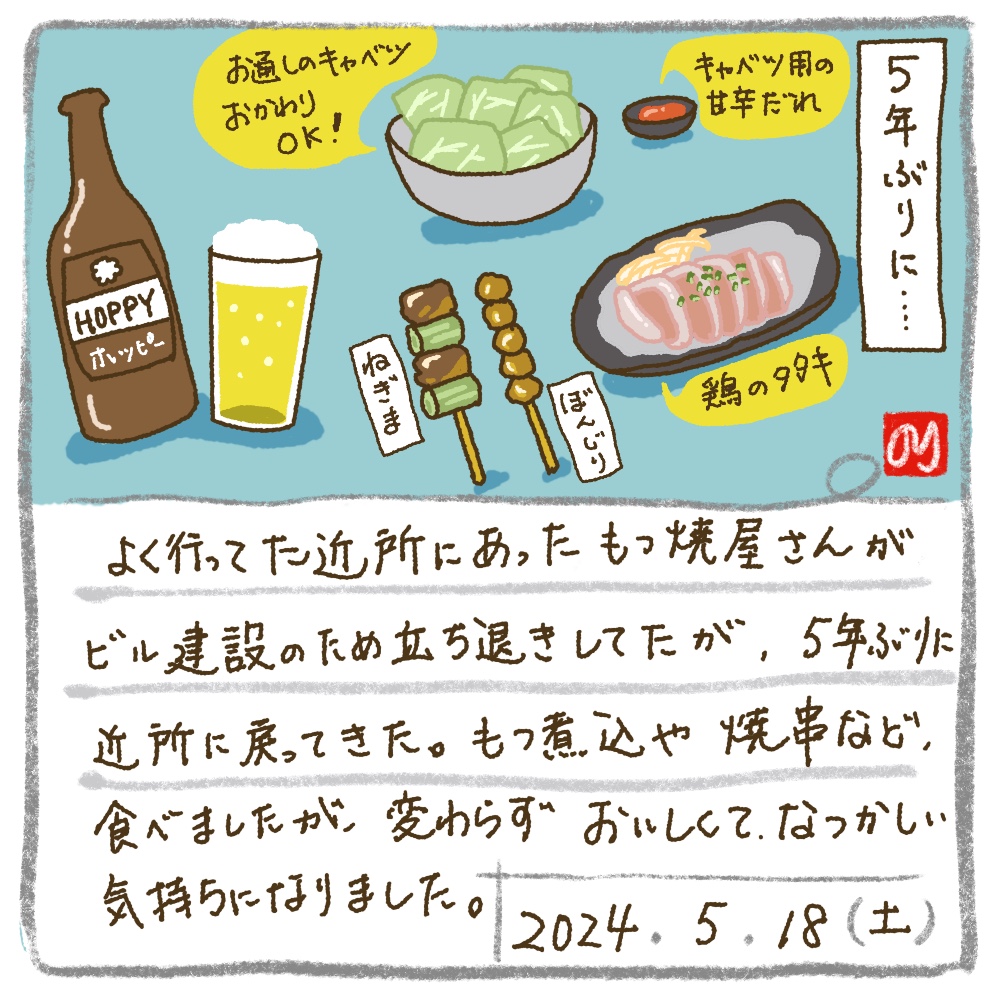 5年ぶりに……
お通しのキャベツ
おかわり
OK!
キャベツ用の
甘辛だれ
HOPPY
ホッピー
ねぎま
ぼんじり
鶏のタタキ
のり
よく行ってた近所にあったもつ焼屋さんが
ビル建設のため立ち退きしてたが、5年ぶりに
近所に戻ってきた。もつ煮込や焼串など、
食べましたが、変わらずおいしくて、なつかしい
気持ちになりました。
2024.5.18(土)